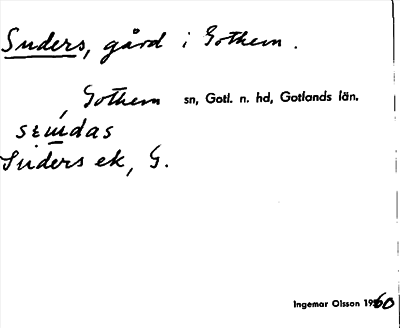 Suders, gård i Gothem.
Gothem sn, Gotl. n. hd, Gotlands län.
Suders ek, G.
Ingemar Olsson 1960